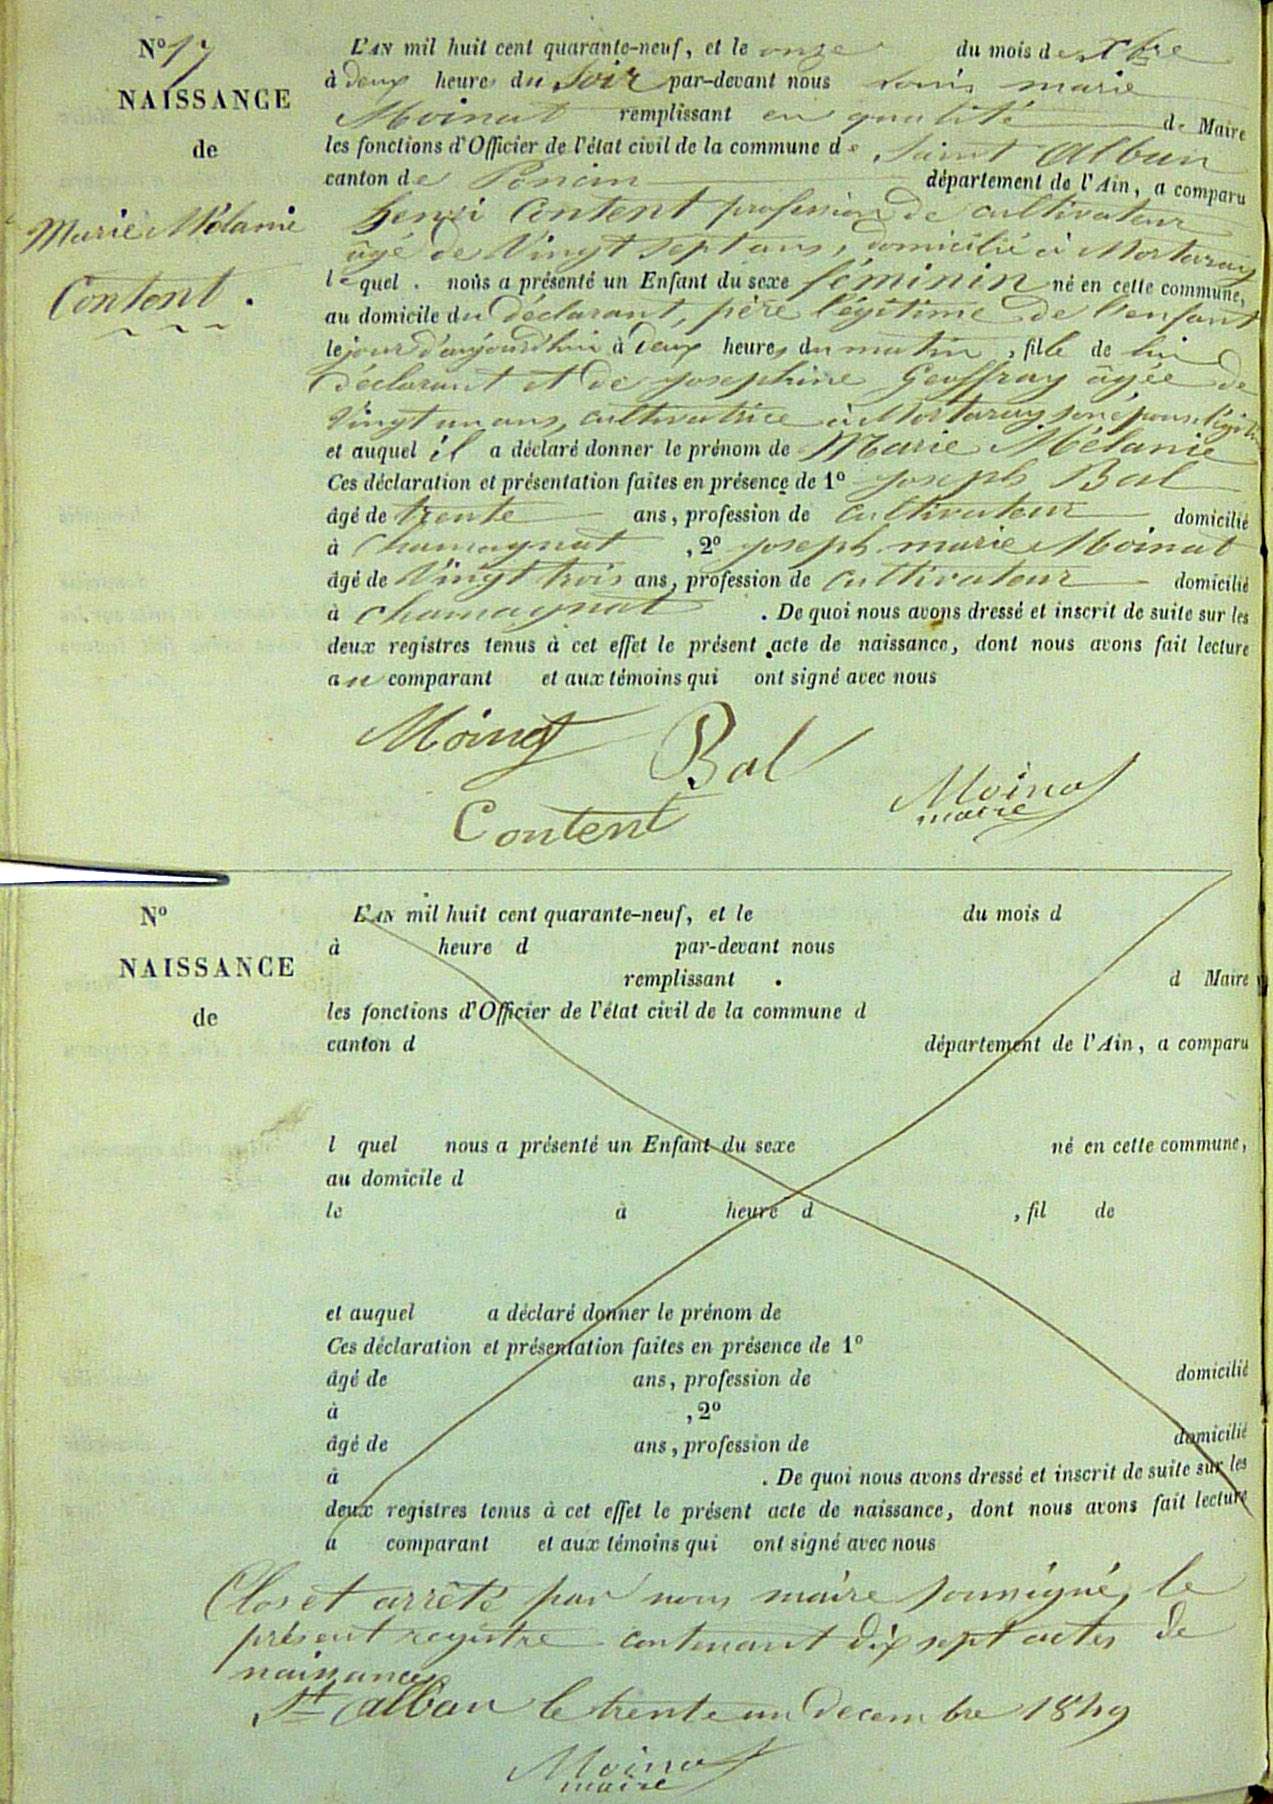 N° 17
NAISSANCE
de
Marie Mélanie
Content.
L'AN mil huit cent quarante-neuf, et le onze du mois de Xbre
à deux heures du Soir par-devant nous Louis marie
Moinat remplissant en qualité de Maire
les fonctions d'Officier de l'état civil de la commune de Saint Alban
canton de Poncin département de l'Ain, a comparu
henri Content profession de cultivateur
âgé de Vingt sept ans, domicilié à Mortaray
lequel nous a présenté un Enfant du sexe féminin né en cette commune,
au domicile du déclarant, père légitime de l'enfant
le jour d'aujourd'hui à deux heures du matin, fille de lui
déclarant et de josephine Geoffray âgée de
Vingt un ans, cultivatrice à Mortaray
et auquel il a déclaré donner le prénom de Marie Mélanie
Ces déclaration et présentation faites en présence de 1° joseph Bal
âgé de trente ans, profession de cultivateur domicilié
à Chamagnat, 2° joseph marie Moinat
âgé de Vingt trois ans, profession de cultivateur domicilié
à Chamagnat. De quoi nous avons dressé et inscrit de suite sur les
deux registres tenus à cet effet le présent acte de naissance, dont nous avons fait lecture
au comparant et aux témoins qui ont signé avec nous
Moinat Bal
Content Moinat
maire
N°
NAISSANCE
de
L'AN mil huit cent quarante-neuf, et le du mois d
à heure d par-devant nous
remplissant . d Maire
les fonctions d'Officier de l'état civil de la commune d
canton d département de l'Ain, a comparu
l quel nous a présenté un Enfant du sexe né en cette commune,
au domicile d
le à heure d , fil de
et auquel a déclaré donner le prénom de
Ces déclaration et présentation faites en présence de 1°
âgé de ans, profession de domicilié
à , 2°
âgé de ans, profession de domicilié
à . De quoi nous avons dressé et inscrit de suite sur les
deux registres tenus à cet effet le présent acte de naissance, dont nous avons fait lecture
a comparant et aux témoins qui ont signé avec nous
Clos et arrêté par nous maire soussigné, le
présent registre contenant dix sept actes de
naissances
St alban le trente un decembre 1849
Moinat
maire